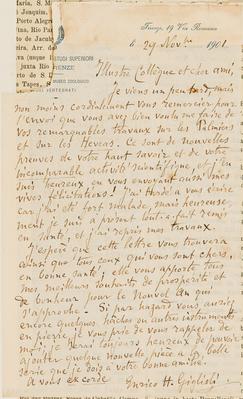 aria. S. M
Joaquim.
Porto Alegre
tina, Rio Par
to de Jacuh
re, Arr. de
juxta Rio
erto de S. I
a Tapes,
STUDI SUPERIORI
FIRENZE
MUSEO ZOOLOGICO
VERTEBRATI
Firenze, 19 Via Romana
29 Novbre 1901
Illustre Collègue et cher ami,
je viens un peu tard, mais
non moins cordialement vous remercier pour
l'envoi que vous avez bien voulu me faire de
vos remarquables travaux sur les Palmiers
et sur les Heveas. Ce sont de nouvelles
preuves de votre haut savoir et de votre
incomparable activité scientifique, et j'en
suis heureux en vous envoyant aussi mes
vives félicitations. J'ai tardé à vous écrire
car j'ai été fort malade, mais heureuse-
ment je suis à présent tout-à-fait remis
en santé, et j'ai repris mes travaux.
J'espère que cette lettre vous trouvera
ainsi que tous ceux qui vous sont chers,
en bonne santé; elle vous apporte tous
mes meilleurs souhaits de prospérité et
de bonheur pour le Nouvel An qui
s'approche. Si par hazard vous auriez
encore quelques haches ou autres instruments
en pierre, je vous prie de vous rappeler de
moi, je serai toujours heureux de pouvoir
ajouter quelque nouvelle pièce à la belle
série que je dois à votre bonne amitié.
A vous ex corde
Enrico H. Giglioli